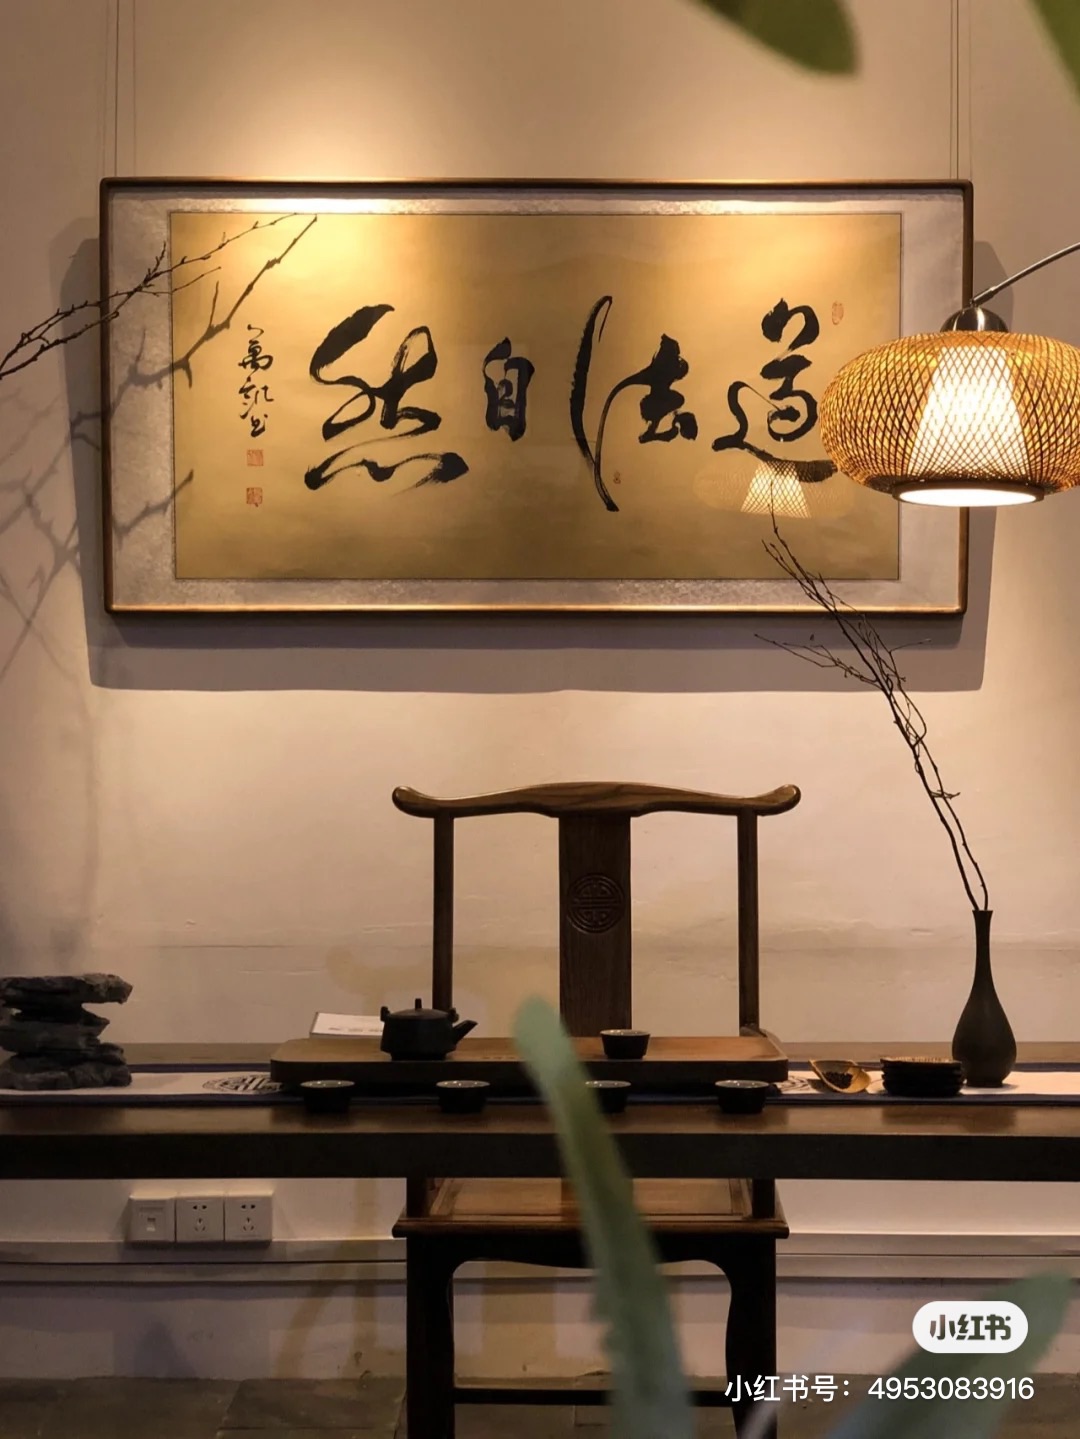 道法自然
小红书
小红书号：4953083916